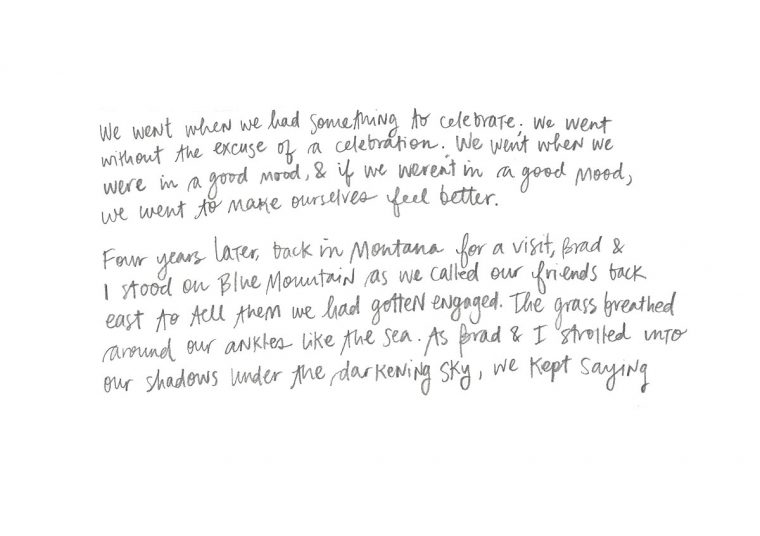 We went when we had something to celebrate; we went
without the excuse of a celebration. We went when we
were in a good mood, & if we weren't in a good mood,
we went to make ourselves feel better.
Four years later, back in Montana for a visit, Brad &
I stood on Blue Mountain as we called our friends back
east to tell them we had gotten engaged. The grass breathed
around our ankles like the sea. As Brad & I strolled into
our shadows under the darkening sky, we kept saying